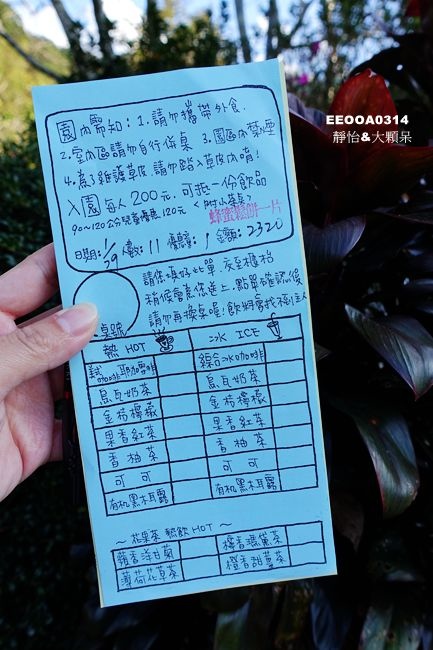 EEOOA0314
靜怡&大顆呆
園內需知：1.請勿攜帶外食.
2.室內區請勿自行併桌 3.園區內禁煙
4.為了維護草皮,請勿踏入草皮內唷!
入園每人200元.可抵一份飲品
90~120公分兒童優惠120元 <附小茶点>
蜂蜜鬆餅一片
日期:1/29 人數:11 優惠:1 金額:2320
請您填好此單,交至櫃枱
稍後會為您送上.點單確認後
請勿再換桌喔!飲料會找不到主人
桌號
熱 HOT
冰 ICE
烏瓦奶茶
烏瓦奶茶
金桔檸檬
金桔檸檬
果香紅茶
果香紅茶
香柚茶
香柚茶
可可
可可
有机黑木耳露
有机黑木耳露
~花果茶 熱飲 HOT~
蘋香洋甘菊
檸香馬黛茶
薄荷花草茶
橙香甜薑茶